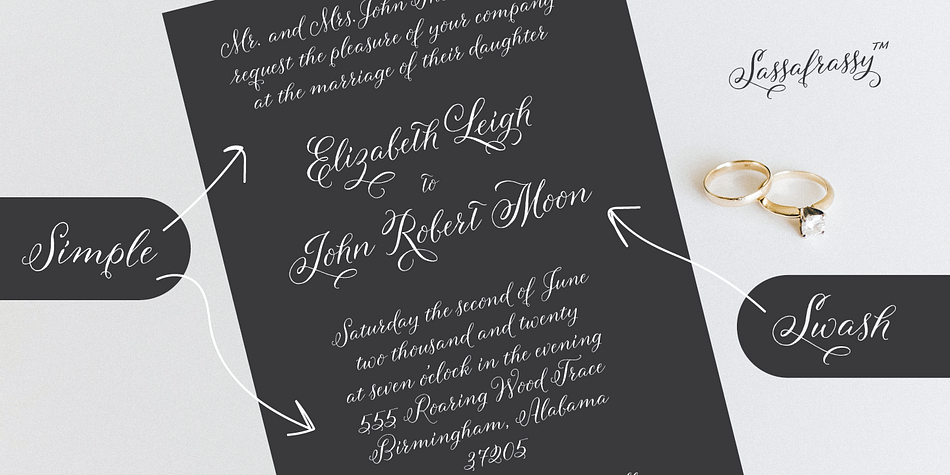 Mr. and Mrs. John
request the pleasure of your company
at the marriage of their daughter
Elizabeth Leigh
to
John Robert Moon
Saturday the second of June
two thousand and twenty
at seven o'clock in the evening
555 Roaring Wood Trace
Birmingham, Alabama
37205
Simple
Sassafrassy™
Swash